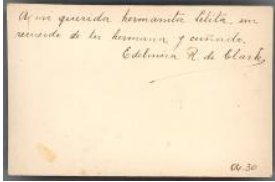 A mi querida hermanita Lilita, un
recuerdo de tu hermana y cuñado.
Edelmira R. de Clark,
30